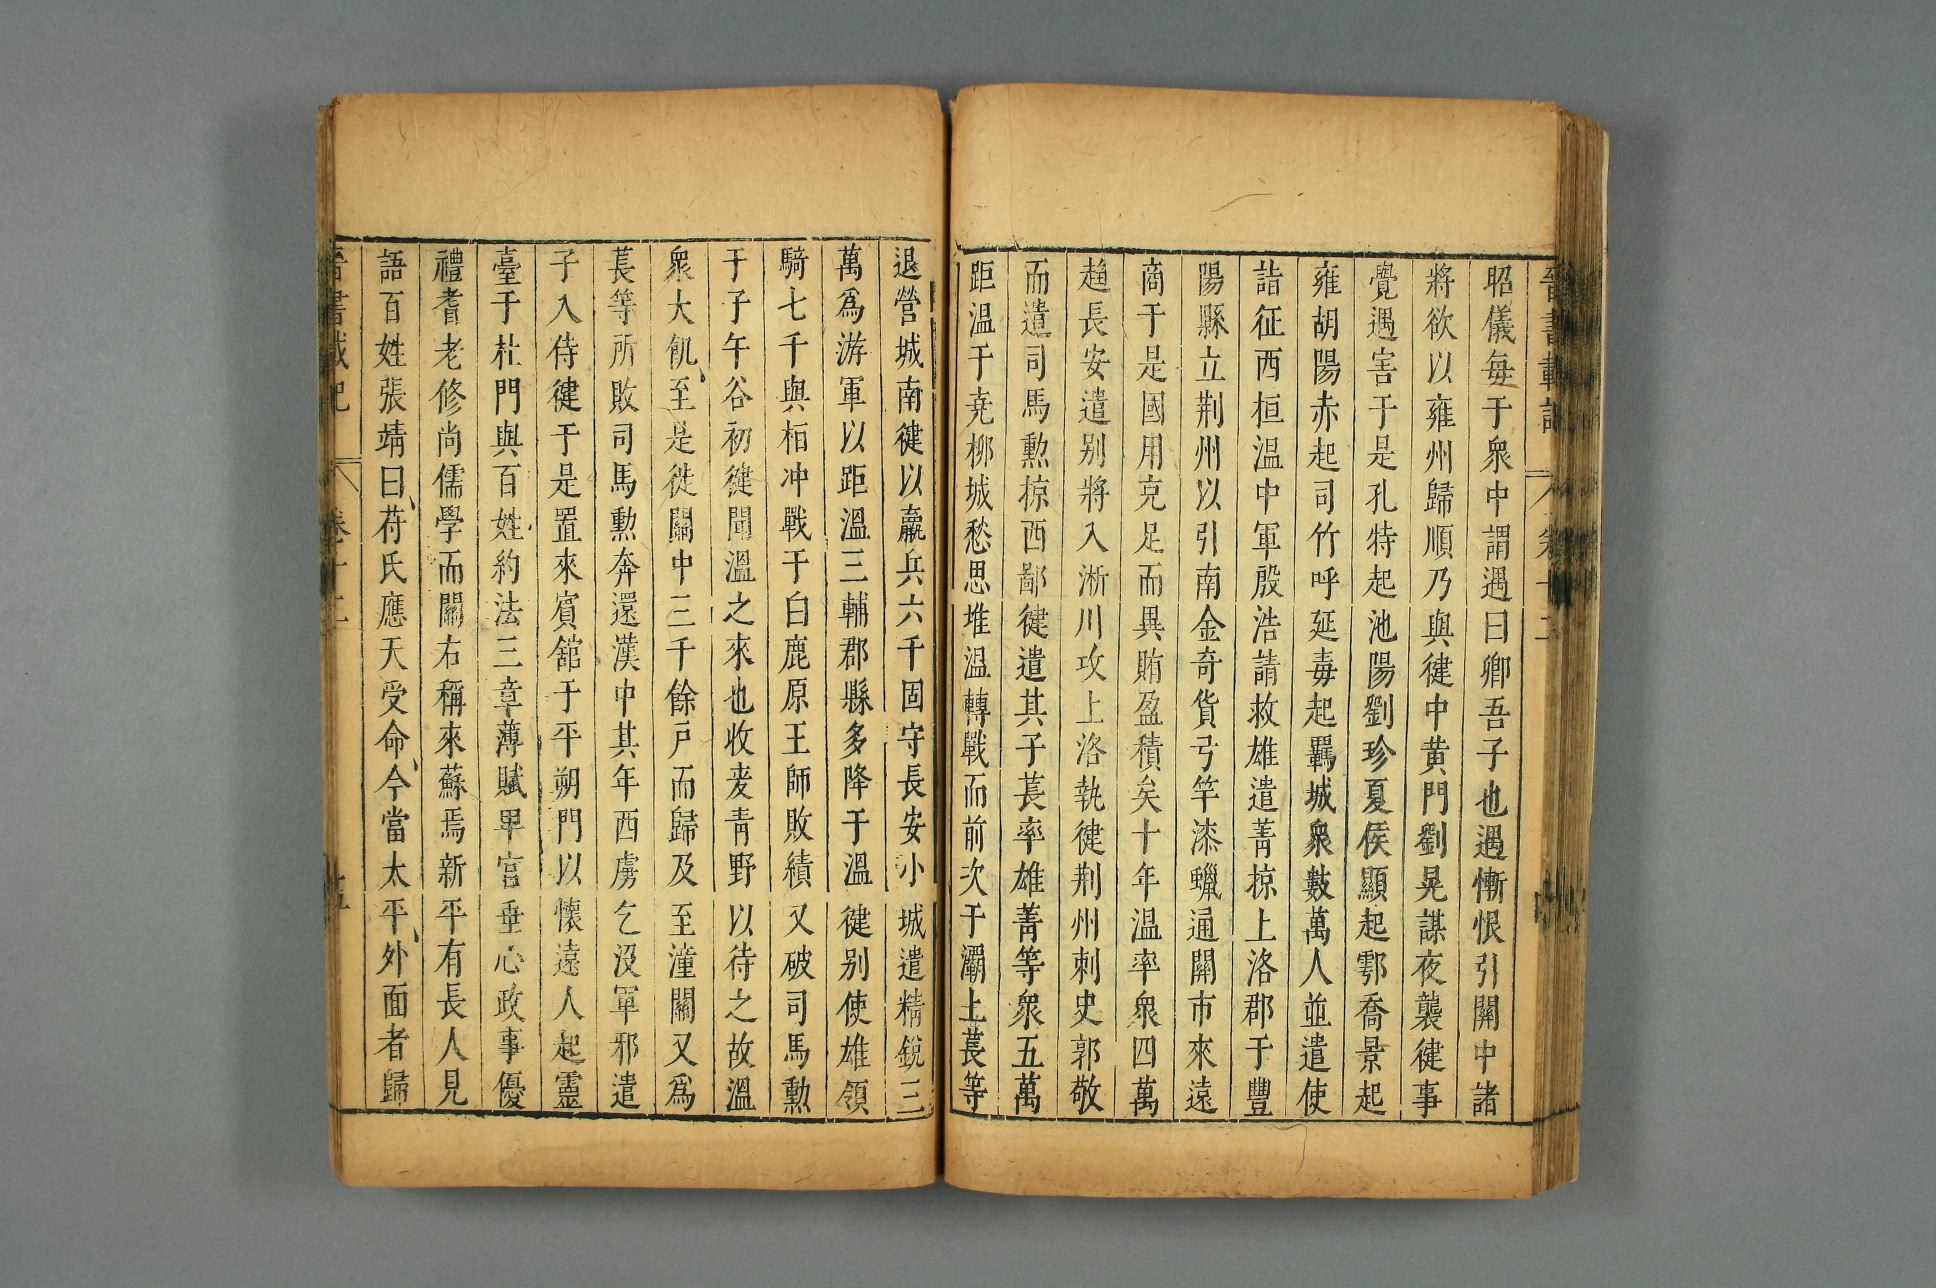 晉書載記 卷十二
昭儀每于衆中謂遇曰卿吾子也遇慚恨引關中諸
將欲以雍州歸順乃與健中黄門劉晃謀夜襲健事
覺遇害于是孔特起池陽劉珍夏侯顯起鄠喬景起
雍胡陽赤起司竹呼延毒起霸城衆數萬人並遣使
詣征西桓温中軍殷浩請救雄遣菁掠上洛郡于豐
陽縣立荆州以引南金奇貨弓竿漆蠟通關市來遠
商于是國用克足而異賄盈積矣十年温率衆四萬
趨長安遣别將入淅川攻上洛執健荆州刺史郭敬
而遣司馬勲掠西鄙健遣其子萇率雄菁等衆五萬
距温于尭栁城愁思堆温轉戰而前次于灞上萇等
退營城南健以羸兵六千固守長安小城遣精銳三
萬爲游軍以距溫三輔郡縣多降于溫健别使雄領
騎七千與桓冲戰于白鹿原王師敗績又破司馬勲
于子午谷初健聞溫之來也收麦青野以待之故溫
衆大飢至是徙關中三千餘戸而歸及至潼關又爲
萇等所敗司馬勲奔還漢中其年西虜乞没軍邪遣
子入侍健于是置來賓舘于平朔門以懷遠人起靈
臺于杜門與百姓約法三章薄賦卑宫垂心政事優
禮耆老修尚儒學而關右稱來蘇焉新平有長人見
語百姓張靖曰苻氏應天受命今當太平外面者歸
晉書載記 卷十二 十五